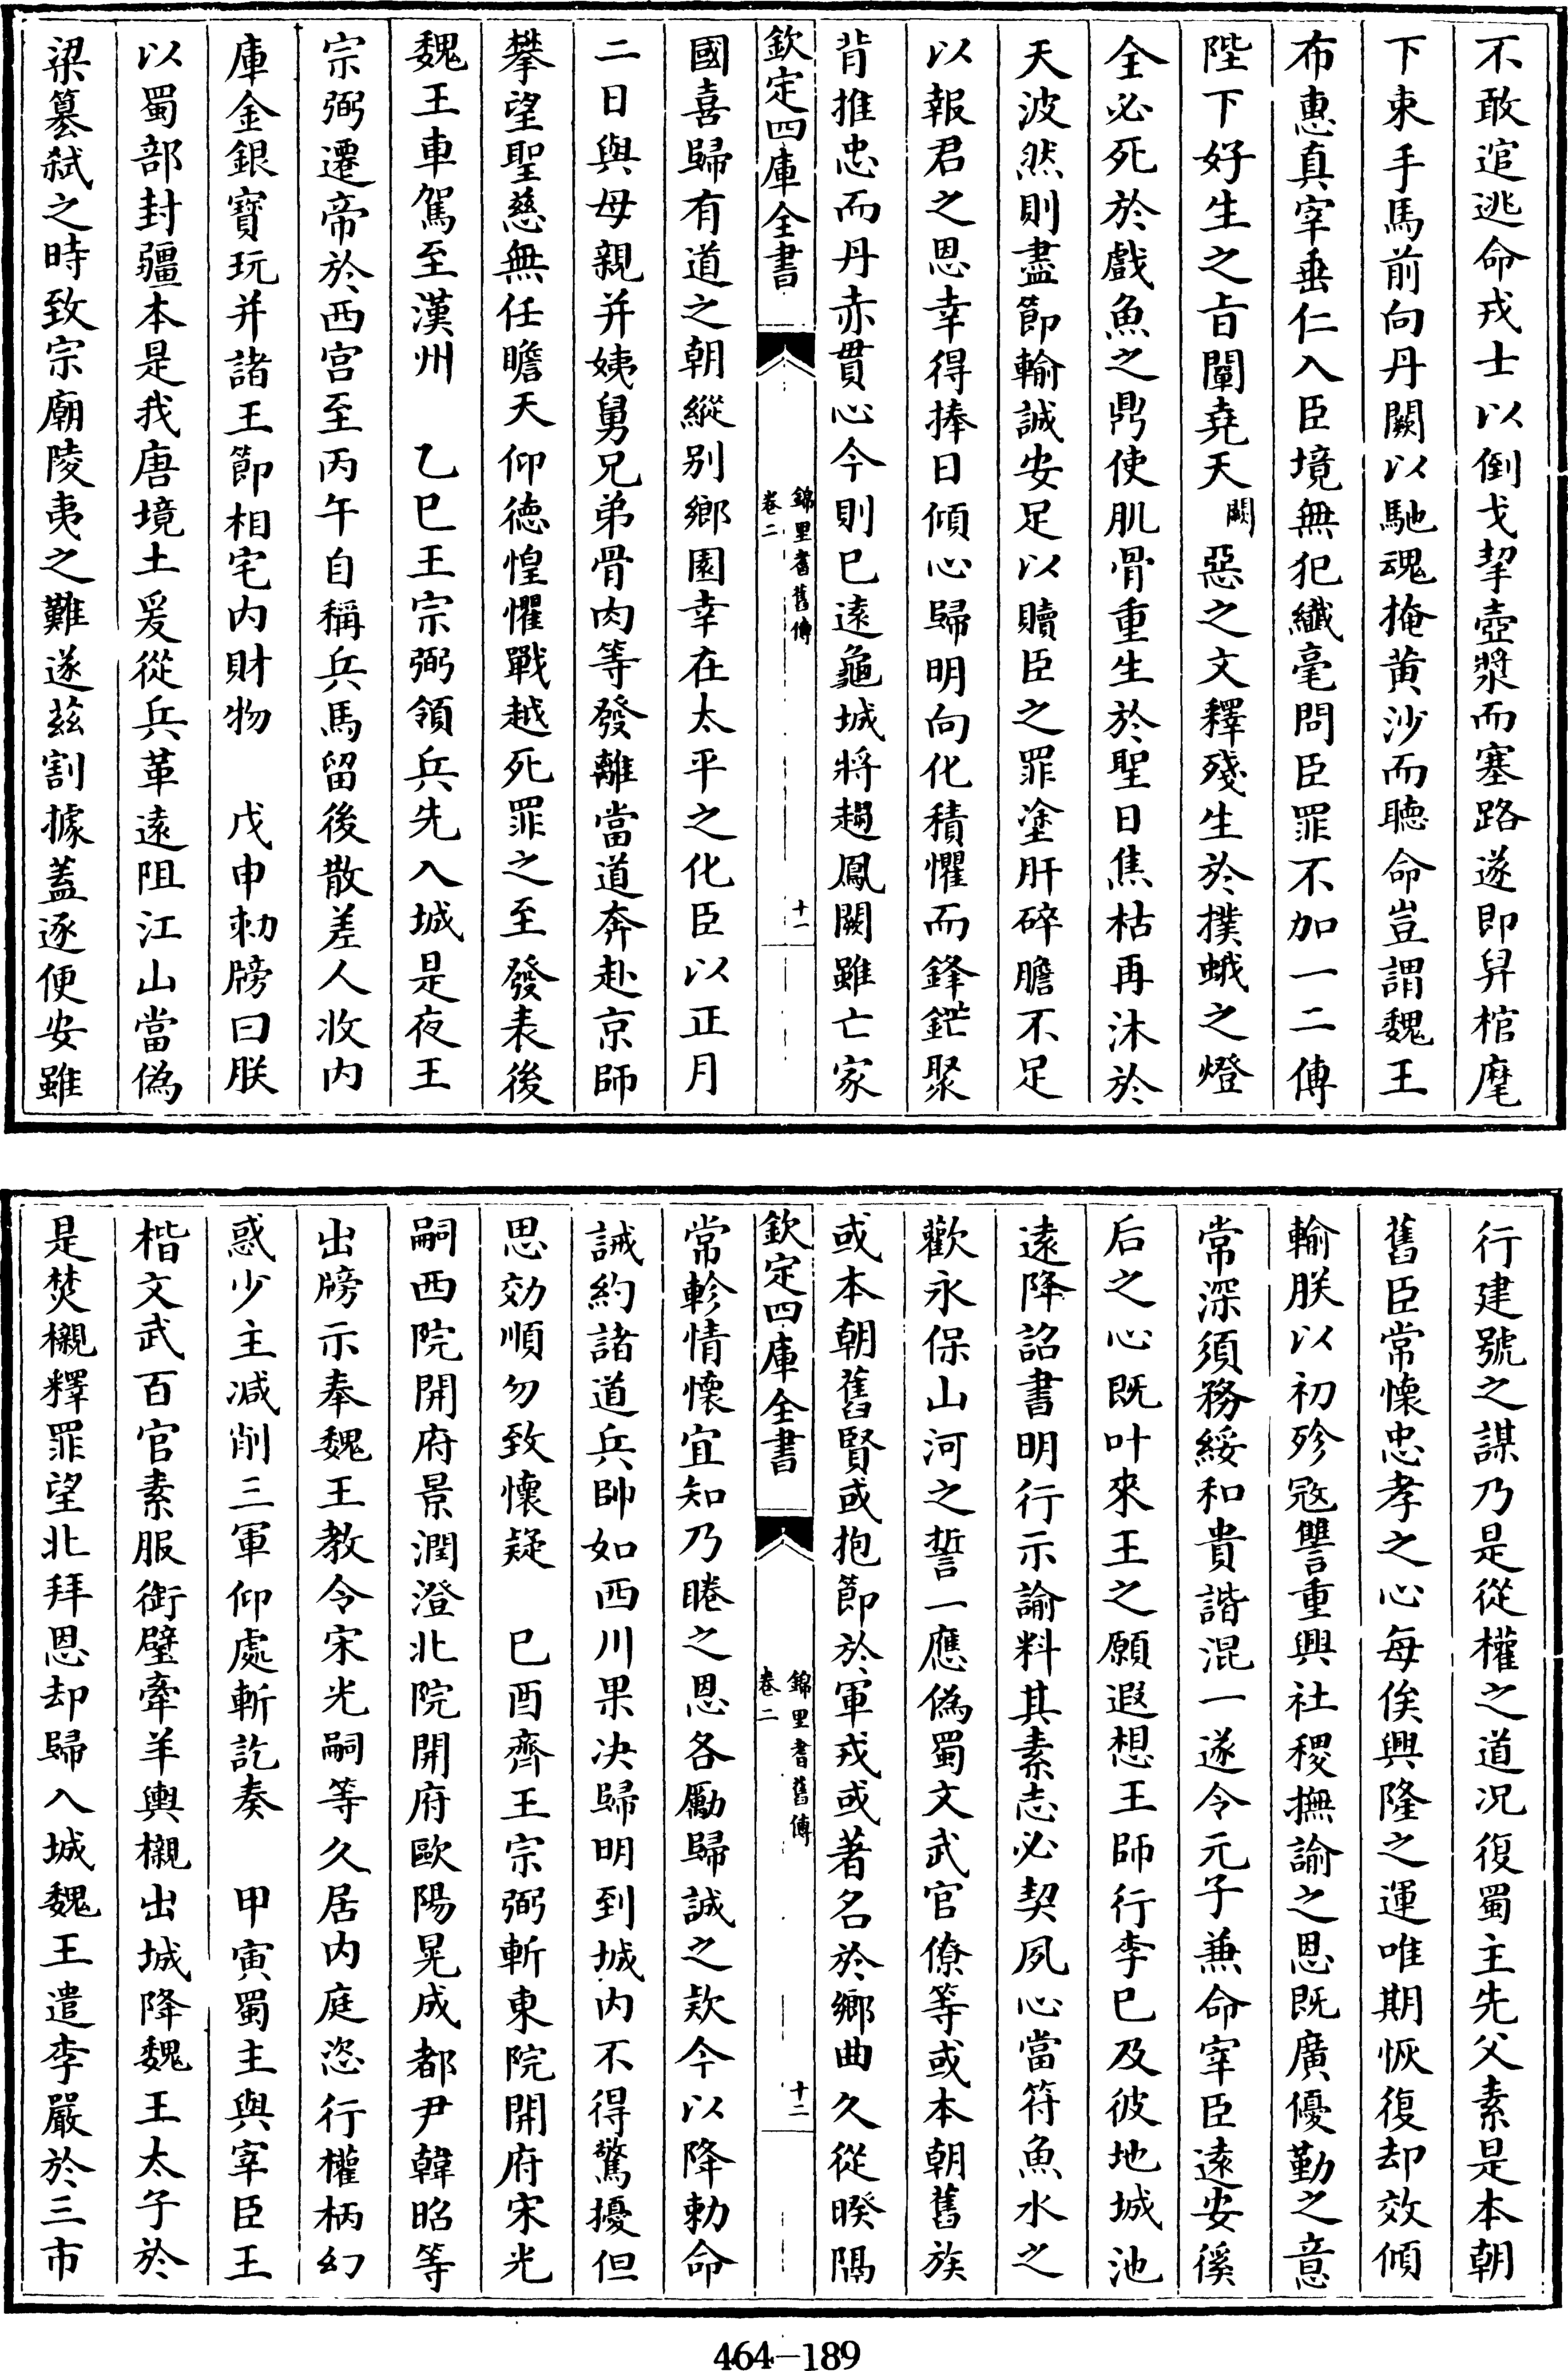 不敢逭逃命戎士以倒戈挈壺漿而塞路遂即舁棺麾
下束手馬前向丹闕以馳魂掩黄沙而聽命豈謂魏王
布惠真宰垂仁入臣境無犯纎毫問臣罪不加一二傳
陛下好生之旨闡堯天闕惡之文釋殘生於撲蛾之燈
全必死於戲魚之鼎使肌骨重生於聖日焦枯再沐於
天波然則盡節輸誠安足以贖臣之罪塗肝碎膽不足
以報君之恩幸得捧日傾心歸明向化積懼而鋒鋩聚
背推忠而丹赤貫心今則已遠龜城將趨鳳闕雖亡家
欽定四庫全書
錦里耆舊傳
卷二
十一
國喜歸有道之朝縱别鄉園幸在太平之化臣以正月
二日與母親并姨舅兄弟骨肉等發離當道奔赴京師
攀望聖慈無任瞻天仰德惶懼戰越死罪之至發表後
魏王車駕至漢州　乙巳王宗弼領兵先入城是夜王
宗弼遷帝於西宫至丙午自稱兵馬留後散差人收内
庫金銀寳玩并諸王節相宅内財物　戊申勑牓曰朕
以蜀部封疆本是我唐境土爰從兵革遠阻江山當偽
梁簒弑之時致宗廟陵夷之難遂兹割據蓋逐便安雖
行建號之謀乃是從權之道况復蜀主先父素是本朝
舊臣常懷忠孝之心每俟興隆之運唯期恢復却效傾
輸朕以初殄寇讐重興社稷撫諭之恩既廣優勤之意
常深須務綏和貴諧混一遂令元子兼命宰臣遠安徯
后之心既叶來王之願遐想王師行李已及彼地城池
遠降詔書明行示諭料其素志必契夙心當符魚水之
歡永保山河之誓一應偽蜀文武官僚等或本朝舊族
或本朝舊賢或抱節於軍戎或著名於鄉曲久從暌隔
欽定四庫全書
錦里耆舊傳
卷二
十二
常軫情懷宜知乃睠之恩各勵歸誠之欵今以降勅命
誡約諸道兵帥如西川果决歸明到城内不得驚擾但
思効順勿致懷疑　已酉齊王宗弼斬東院開府宋光
嗣西院開府景潤澄北院開府歐陽晃成都尹韓昭等
出牓示奉魏王教令宋光嗣等久居内庭恣行權柄幻
惑少主减削三軍仰處斬訖奏　甲寅蜀主與宰臣王
楷文武百官素服銜璧牽羊輿櫬出城降魏王太子於
是焚櫬釋罪望北拜恩却歸入城魏王遣李嚴於三市
464—189